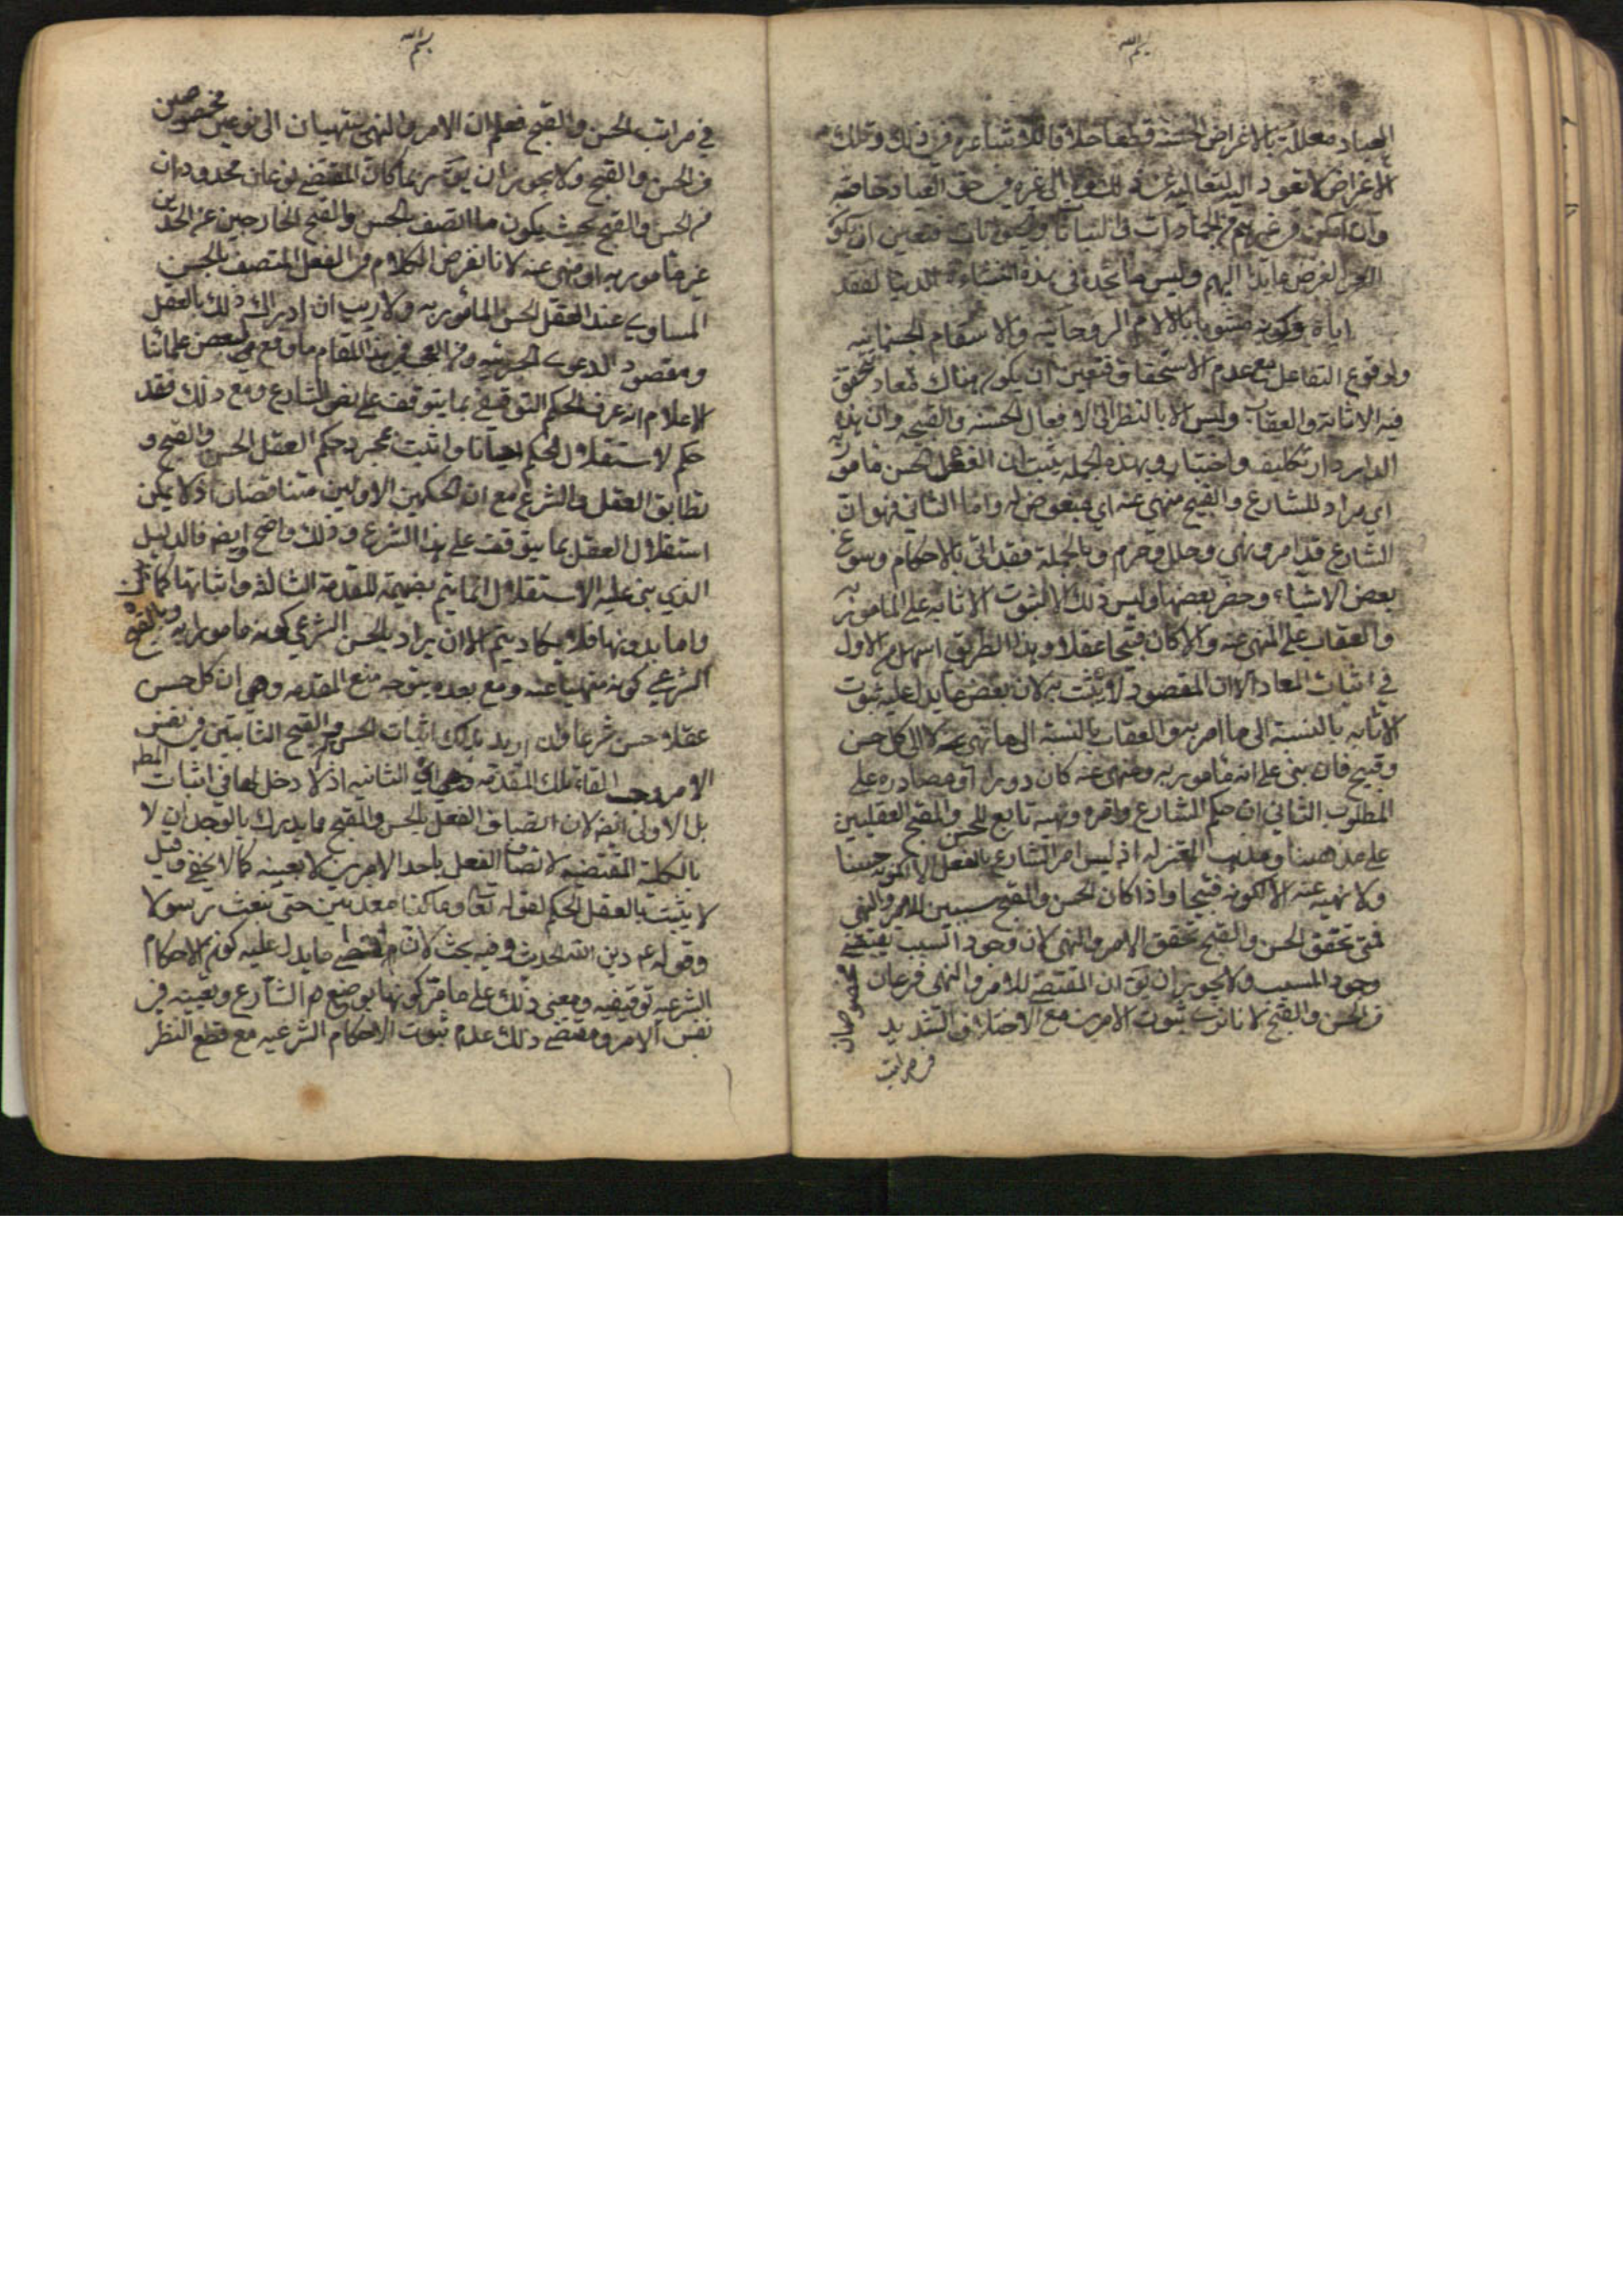 بسم الله
العباد معللة بالاغراض الحسنة قطعا خلافا للاشاعره في ذلك وتلك
الاغراض لا تعود اليه لتعاليه عن ذلك الى غيره في حق العباد خاصه
وان امكن في غيرهم من الجمادات والنباتات فتعين ان يكون
الغرض عايدا اليهم وليس ما نجده في هذه النشاءة الدنيا لفقد
اياه وكونه مشوبا بالالام الروحانيه والاسقام الجسمانيه
ولوقوع التفاعل مع عدم الاستحقاق فتعين ان يكون هناك معاد يتحقق
فيه الاثابة والعقاب وليس الا بالنظر الى الافعال الحسنه والقبيحه وان هذه
الدار دار تكليف واختبار وبهذه الجمله يثبت ان الفعل الحسن مامور به
اي مراد للشارع والقبيح منهي عنه اي مبغوض له واما الثاني فهو ان
الشارع قد امر ونهى وحلل وحرم وبالجملة فقد اتى بالاحكام وسوغ
بعض الاشياء وحضر بعضها وليس ذلك الا لثبوت الاثابه على المامور به
والعقاب على المنهي عنه والا كان قبيحا عقلا وهذا الطريق اسهل من الاول
في اثبات المعاد الا ان المقصود لا يثبت به لان بعض ما يدل عليه ثبوت
الاثابه بالنسبة الى ما امر به والعقاب بالنسبة الى ما نهى عنه لا الى كل حسن
وقبيح فان بنى على انه مامور به ومنهي عنه كان دورا او مصادره على
المطلوب الثاني ان حكم الشارع وامره ونهيه تابع للحسن والقبح العقليين
على مذهبنا ومذهب المعتزله اذ ليس امر الشارع بالفعل الا لكونه حسنا
ولا نهيه عنه الا لكونه قبيحا واذا كان الحسن والقبح سببين للامر والنهي
فمتى تحقق الحسن والقبح تحقق الامر والنهي لان وجود السبب يقتضي
وجود المسبب ولا يجوز ان يق ان المقتضي للامر والنهي فرعان مخصوصان
من الحسن والقبح لانا نرى ثبوت الامرين مع الاختلاف الشديد
في مراتب
بسم الله
في مراتب الحسن والقبح فعلم ان الامر والنهي ينتهيان الى نوعين مخصوصين
من الحسن والقبح ولا يجوز ان يق ربما كان المقتضي نوعان محدودان
من الحسن والقبح بحيث يكون ما اتصف بالحسن والقبح الخارجين عن الحدين
غير مامور به او منهي عنه لانا نفرض الكلام في الفعل المتصف بالحسن
المساوي عند العقل لحسن المامور به ولا ريب ان ادراك ذلك بالعقل
ومقصود الدعوى الجزئيه ومن العجب في هذا المقام ما وقع من بعض علمائنا
الاعلام انه عرف الحكم التوقيفي بما يتوقف على نص الشارع ومع ذلك فقد
حكم لاستقلال الحكم احيانا واثبت بمجرد حكم العقل الحسن والقبح و
تطابق العقل والشرع مع ان الحكمين الاولين متناقضان اذ لا يمكن
استقلال العقل بما يتوقف على هذا الشرع وذلك واضح وايضا فالدليل
الذي بنى عليه الاستقلال انما يتم بضميمة للمقدمة الثالثه واثباتها كما ترى
واما بدونها فلا يكاد يتم الا ان يراد بالحسن الشرعي كونه مامورا به وبالقبح
الشرعي كونه منهيا عنه ومع بعده يتوجه منع المقدمه وهي ان كل حسن
عقلا حسن شرعا وان اريد بذلك اثبات الحسن والقبح الثابتين في نفس
الامر وجب القاء تلك المقدمه وهي الثانيه اذ لا دخل لها في اثبات المط
بل الاولى ايضا لان اتصاف الفعل بالحسن والقبح مما يدرك بالوجدان لا
بالكلمة المقتضيه لاتصاف الفعل باحد الامرين لا بعينه كما لا يخفى وقيل
لا يثبت بالعقل الحكم لقوله تعا وما كنا معذبين حتى نبعث رسولا
وقوله عم دين الله الحديث وفيه بحث لان اقصى ما يدل عليه كون الاحكام
الشرعيه توقيفيه ومعنى ذلك على ما مر كونها بوضع من الشارع وتعيينه في
نفس الامر ومقتضى ذلك عدم ثبوت الاحكام الشرعيه مع قطع النظر